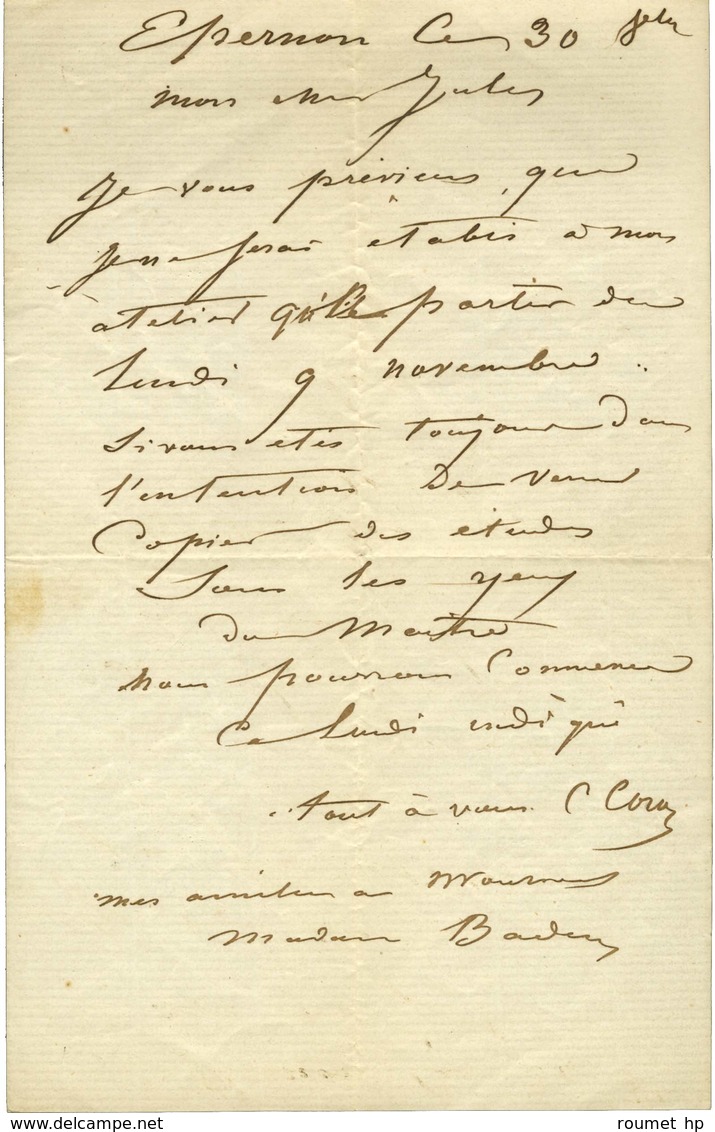 Epernon Ce 30 8bre
mon cher Jules
Je vous previens, que
je ne serai établis à mon
atelier qu'à partir du
lundi 9 novembre ..
si vous etes toujours dans
l'intention De venir
Copier des études
Sous les yeux
du Maitre
nous pourrons Commencer
Ce lundi indiqué
tout à vous. C Corot
mes amities a Monsieur
Madame
roumet hp